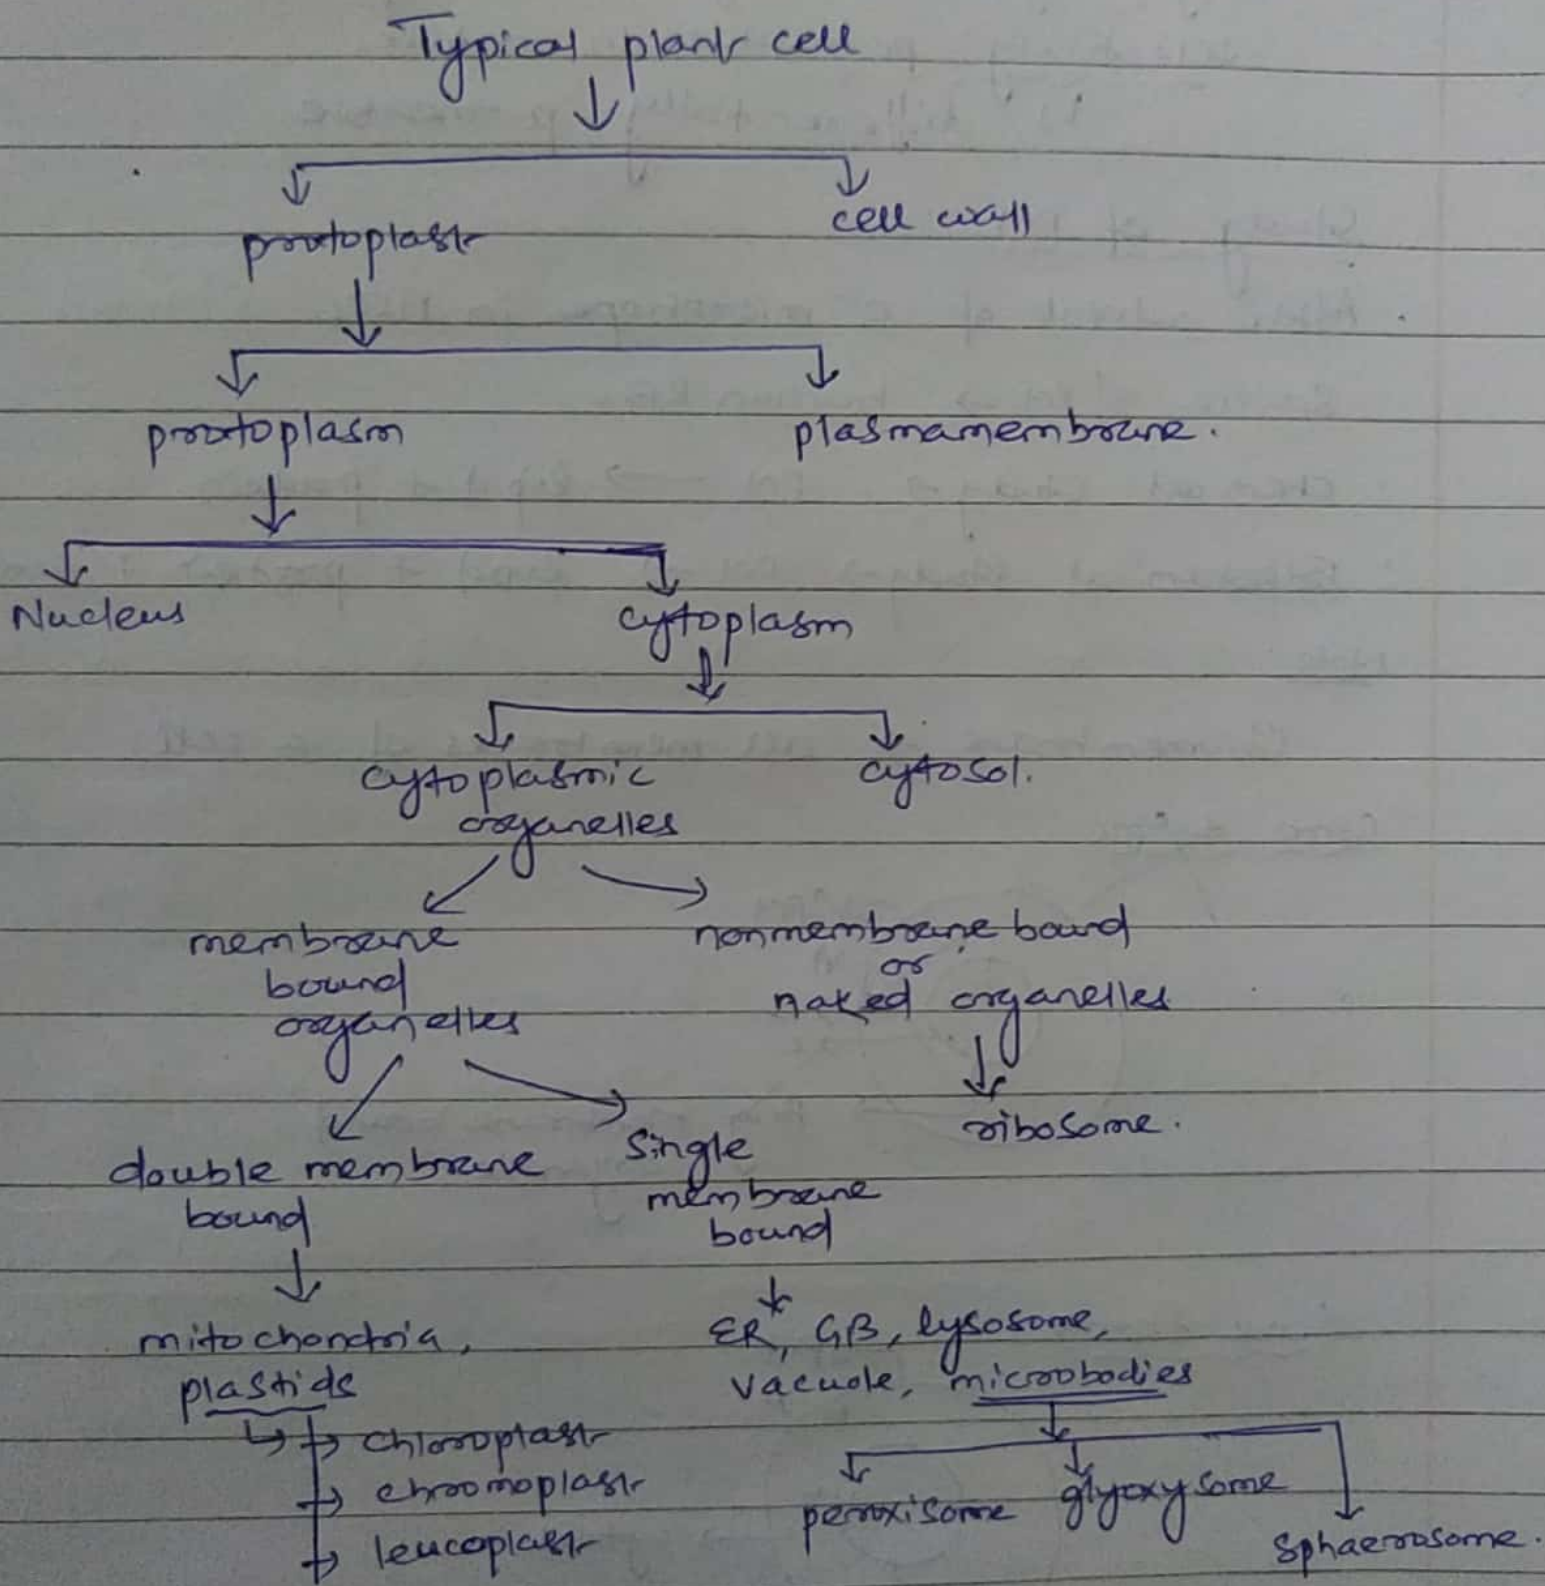 Typical plant cell
protoplast
cell wall
protoplasm
plasmamembrane.
Nucleus
cytoplasm
cytoplasmic
organelles
cytosol.
membrane
bound
organelles
nonmembrane bound
or
naked organelles
ribosome.
double membrane
bound
Single
membrane
bound
mitochondria,
plastids
chloroplast
chromoplast
leucoplast
ER, GB, lysosome,
vacuole, microbodies
peroxisome
glyoxysome
sphaerosome.